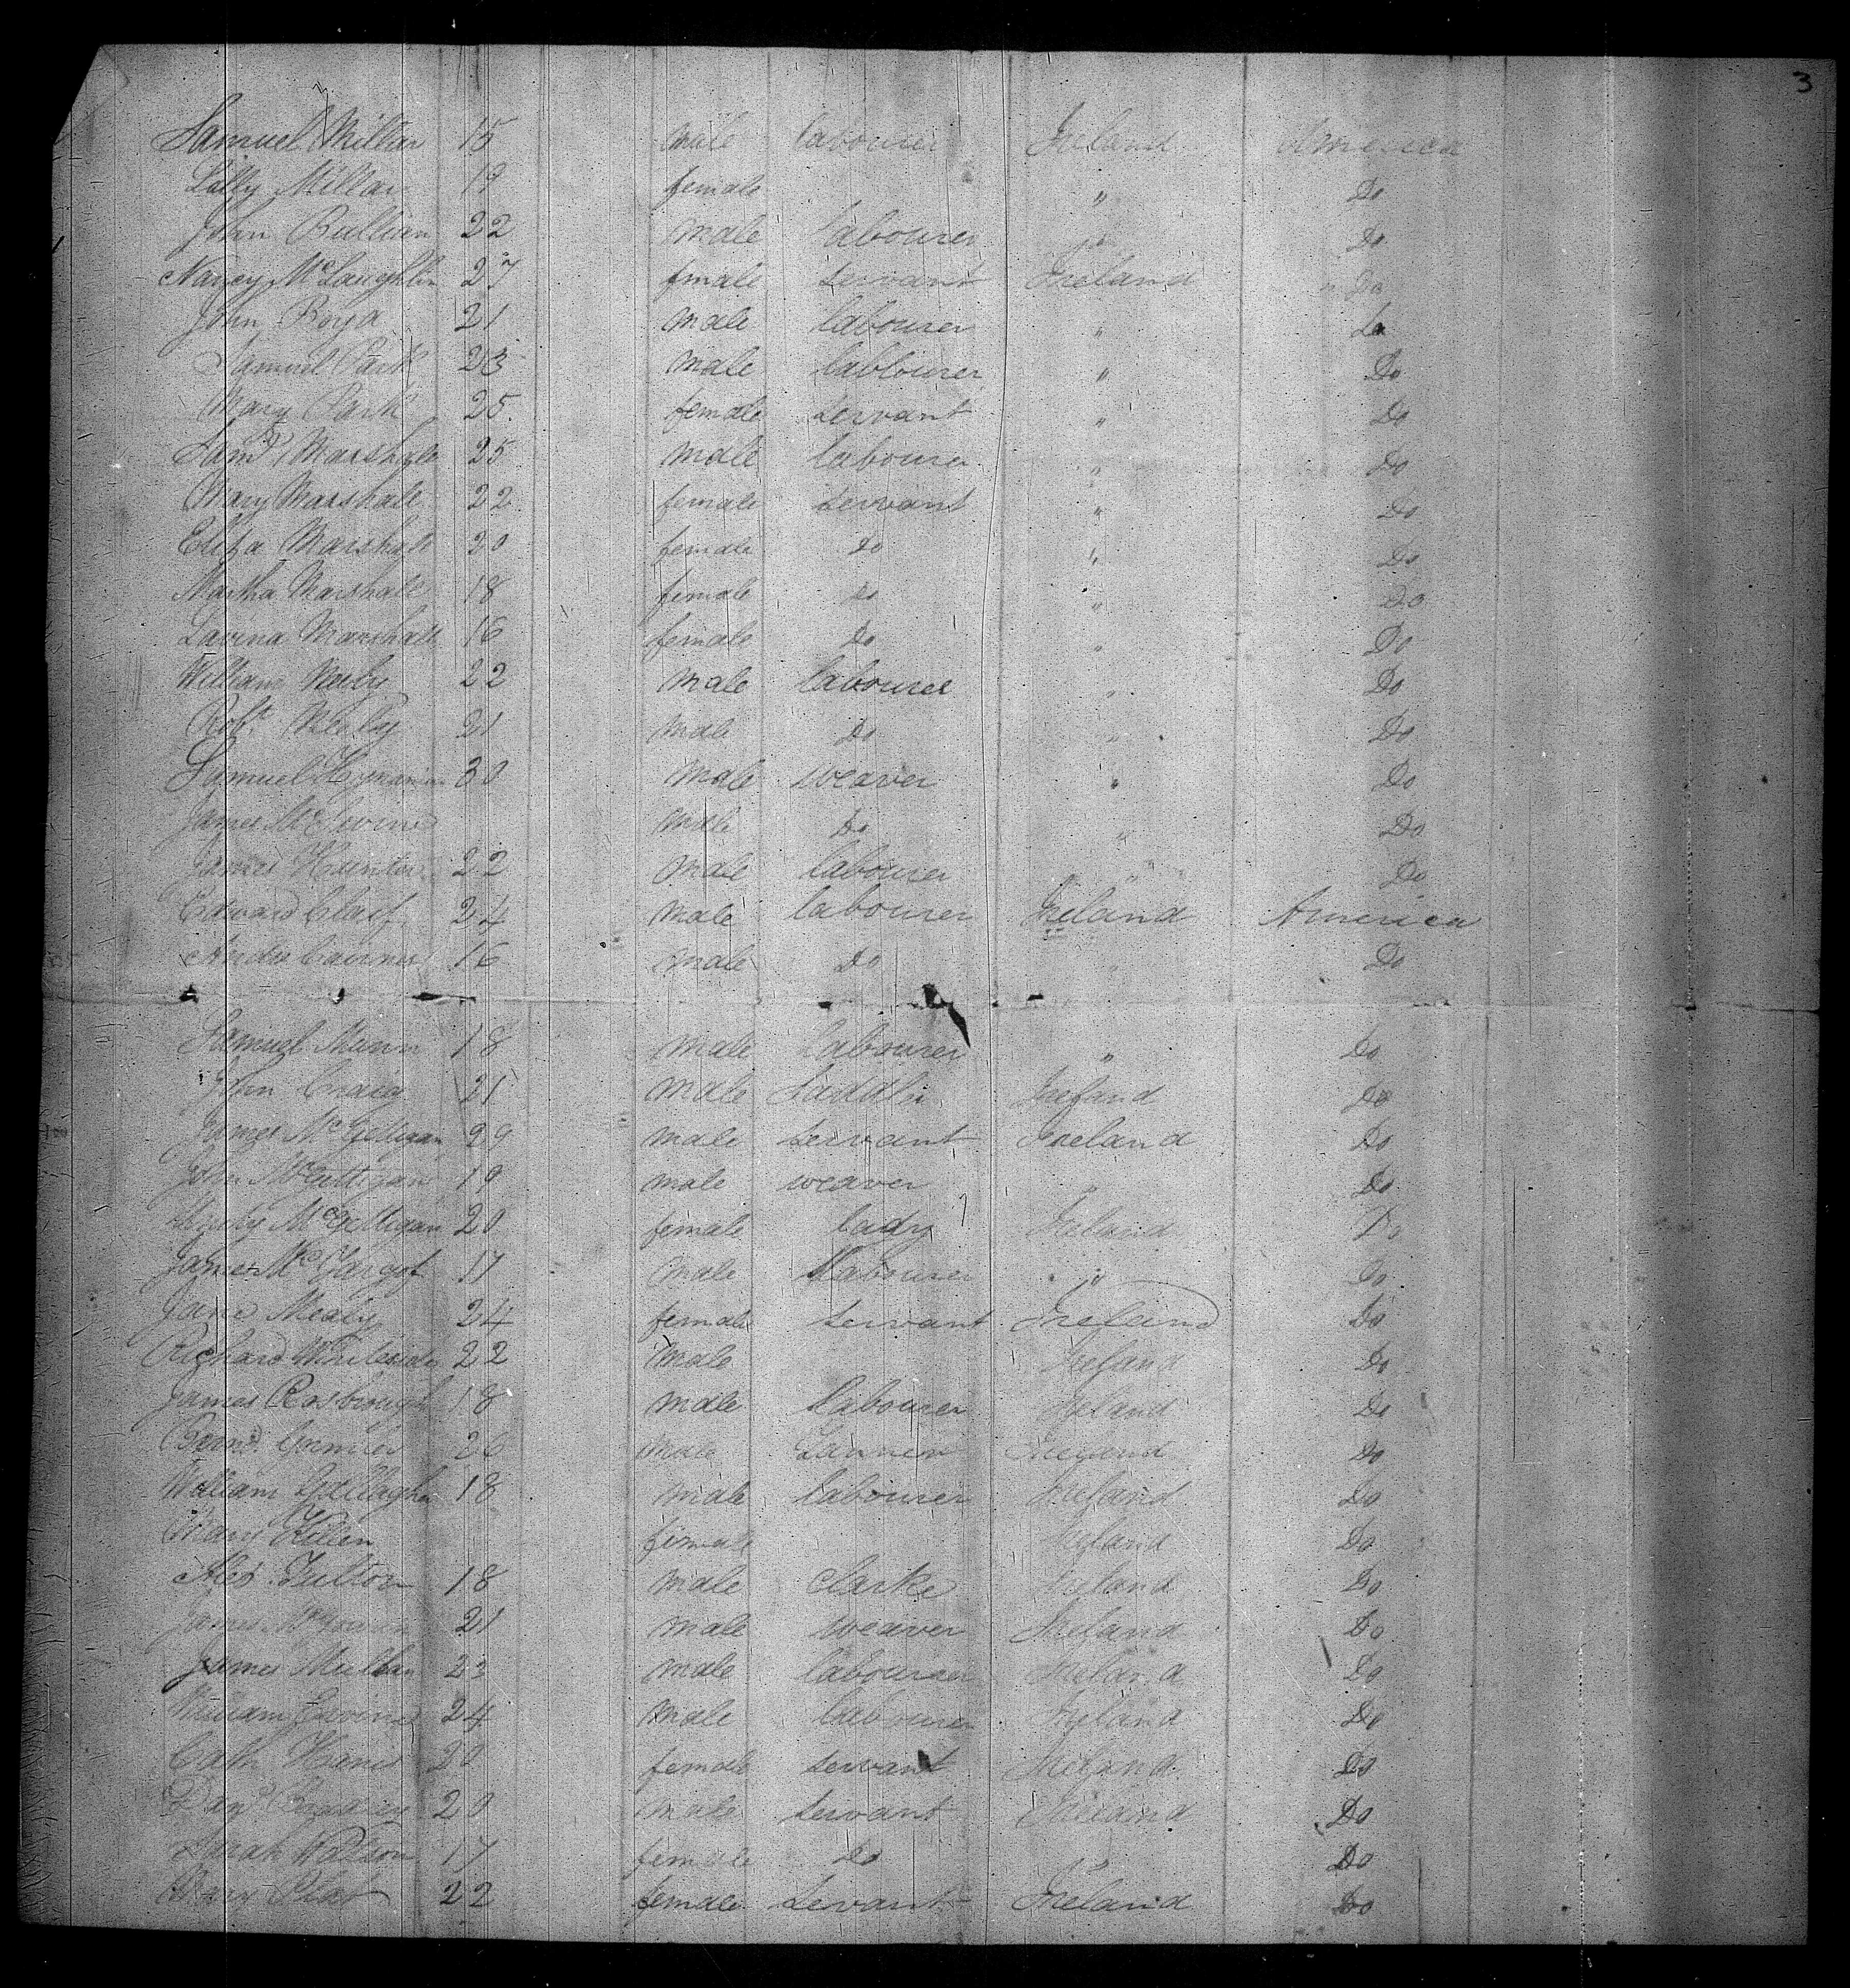 3
Samuel Millar 15 male labourer Ireland America
Lally Millar 19 female " Do
John Bullian 22 male labourer " Do
Nancy McLaughlin 27 female servant Ireland " Do
John Boyd 21 male labourer " Do
Samuel Park 23 male lablourer " Do
Mary Park 25 female servant " Do
Saml Marshall 25 male labourer " Do
Mary Marshall 22 female servant " Do
Eliza Marshall 20 female Do " Do
Martha Marshall 18 female Do " Do
Lavina Marshall 16 female Do " Do
William 22 male labourer " Do
Robt 21 male Do " Do
Samuel 30 male weaver " Do
James male Do " Do
James Hunter 22 male labourer " Do
Edward 24 male labourer Ireland America
Cairns 16 male Do " Do
Samuel Munn 18 male labourer " Do
John Craig 21 male Saddler Ireland Do
James McGettigan 29 male servant Ireland Do
John McGettigan 19 male weaver " Do
McGettigan 20 female lady Ireland Do
James 17 male labourer " Do
Jane Mealy 24 female servant Ireland Do
Richard Whiteside 22 male Ireland Do
James Rosbrough 18 male labourer Ireland Do
26 male Ireland Do
William Gallagher 18 male labourer Ireland Do
Mary Killen female Ireland Do
Alex Fulton 18 male clarke Ireland Do
James 21 male weaver Ireland Do
James Mullan 23 male labourer Ireland Do
William 24 male labourer Ireland Do
Cath 20 female servant Ireland Do
20 male servant Ireland Do
Sarah Watson 17 female Do " Do
Mary 22 female servant Ireland Do